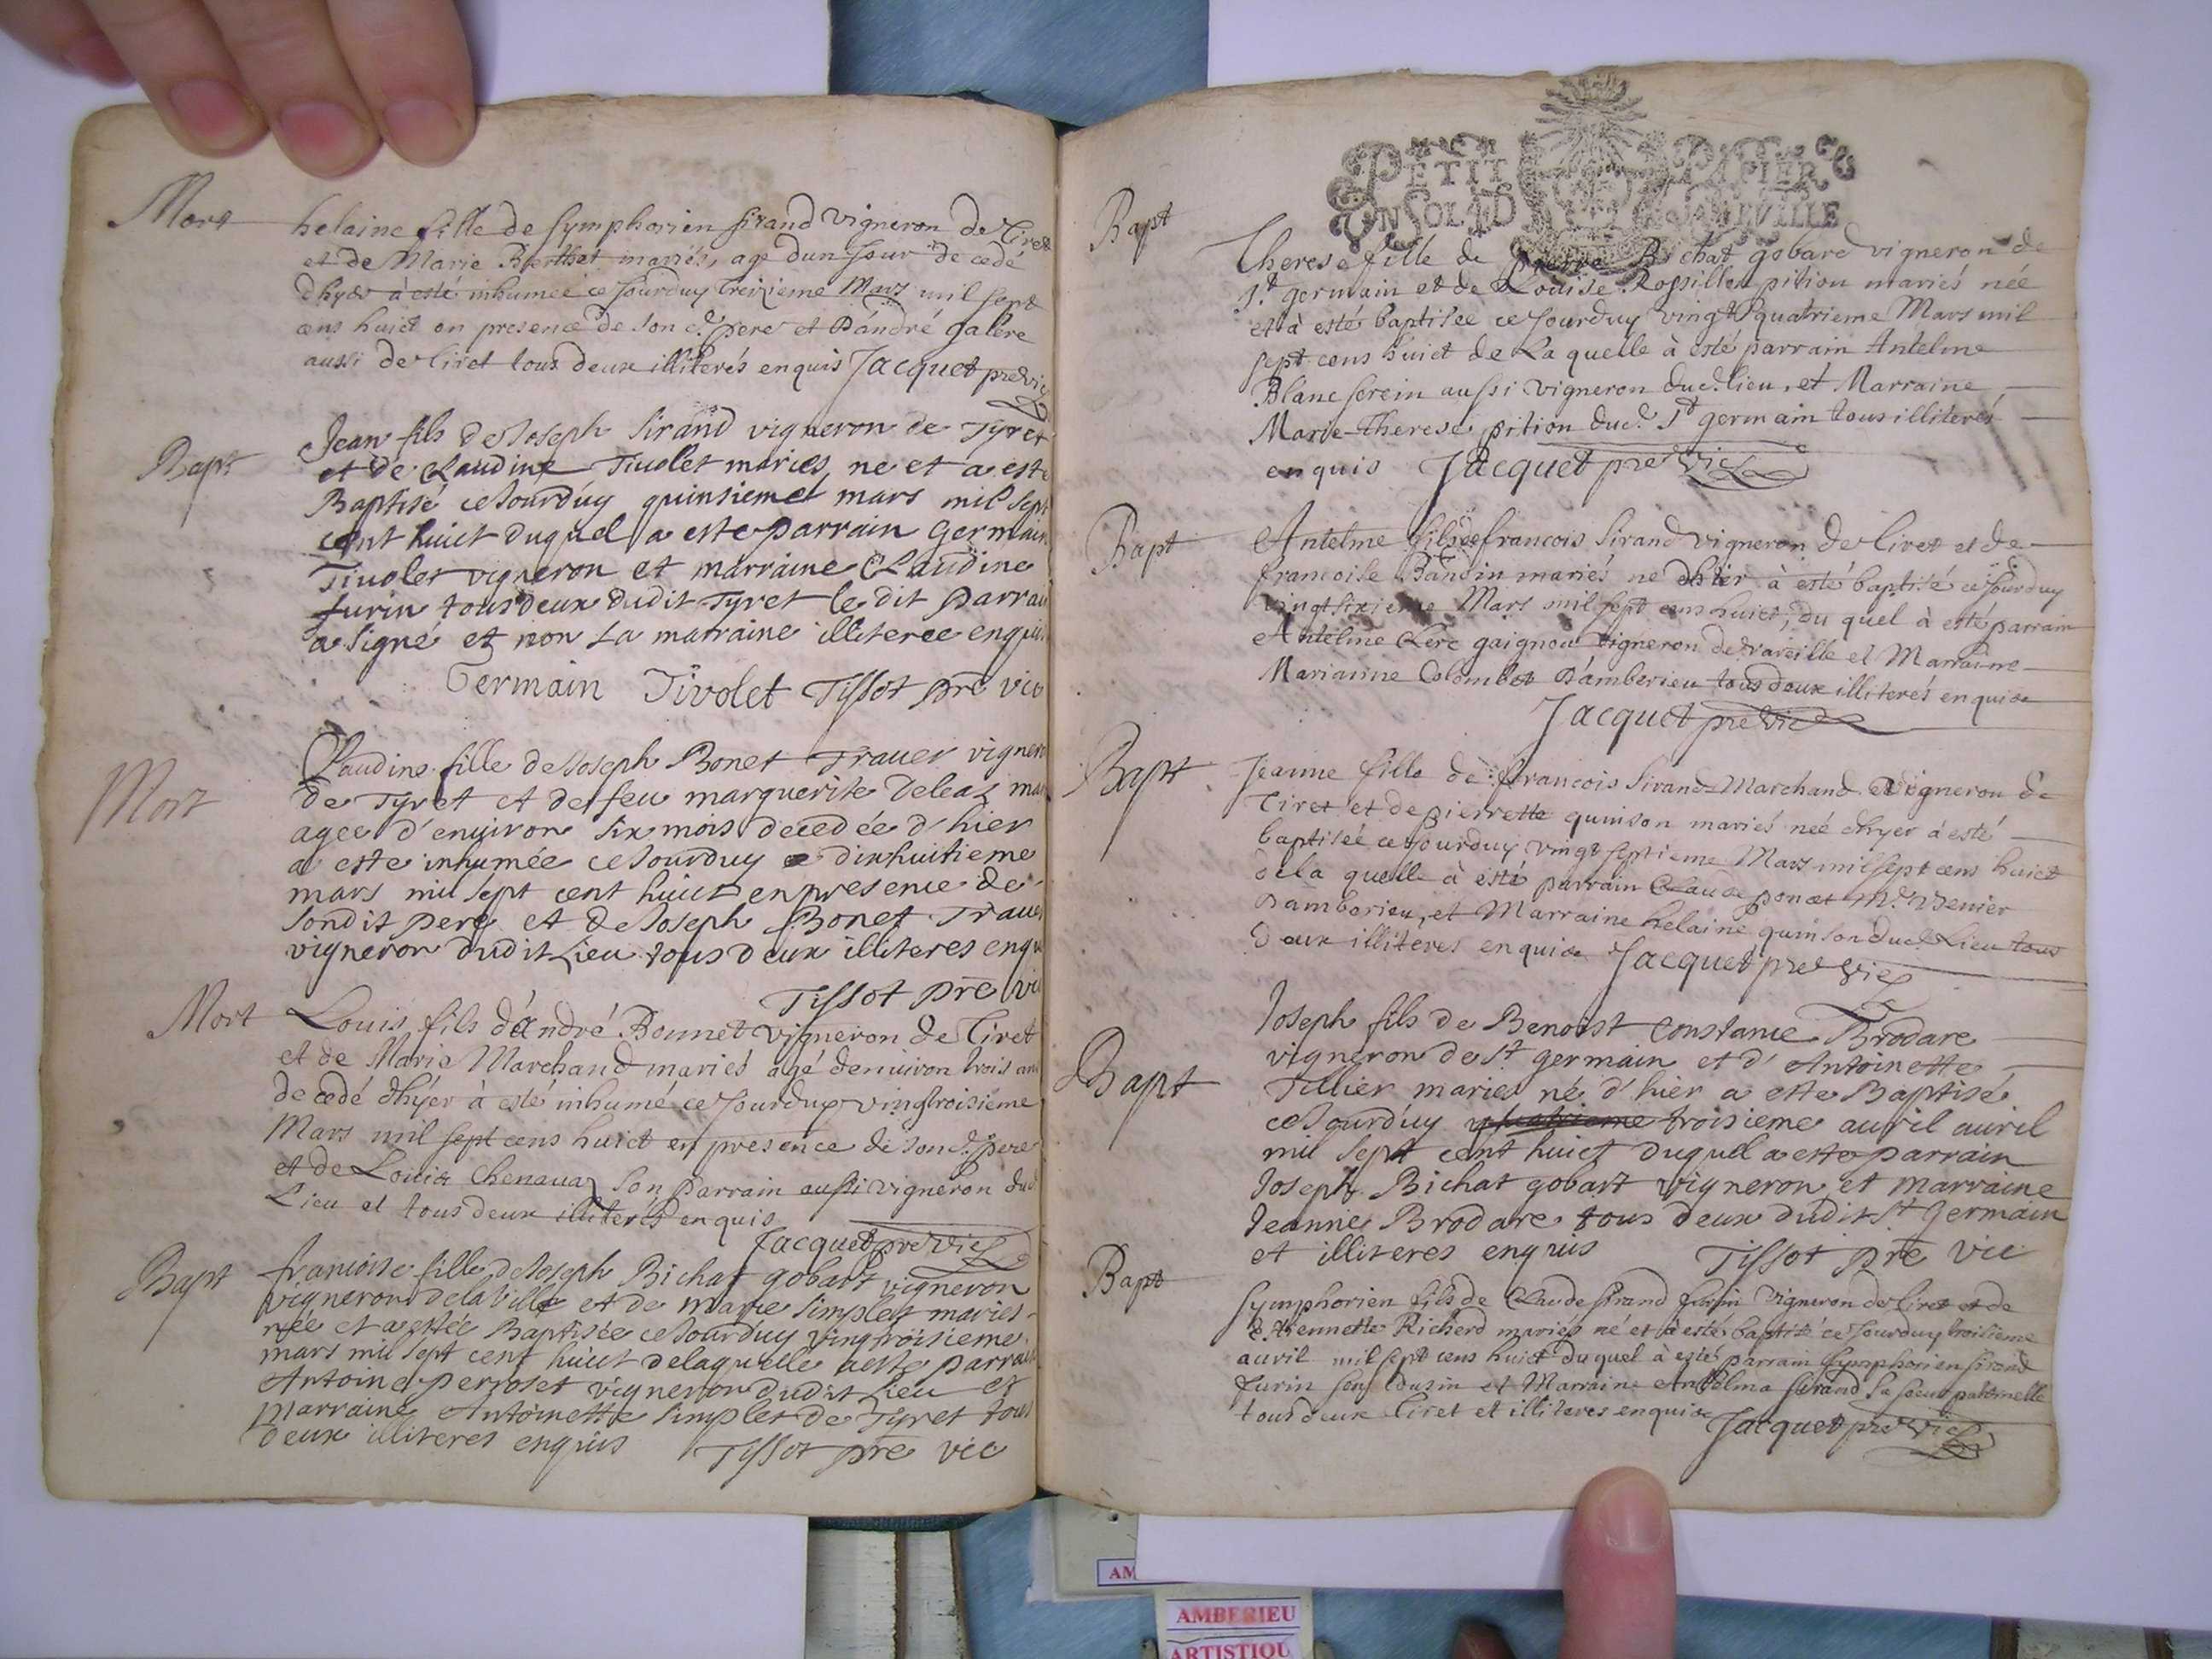 Mort
helaine fille de symphorien sirand vigneron de Tiret
et de Marie Berthet mariés, age dun jour de cedé
dhyer à esté inhumeé ce Jourduy treizieme Mars mil sept
cens huict en presence de son d. pere et D'andré galere
aussi de tiret tous deux illiterés enquis Jacquet pre vic
Bapt
Jean fils de Joseph Sirand vigneron de Tyret
et de Claudine Tiuolet maries, ne et a este
Baptisé ce Jourduy quinsieme mars mil sept
cent huict duquel a este parrain Germain
Tiuolet vigneron et marraine Claudine
furin tous deux dudit Tyret le dit parrain
a signé et non La marraine illiteree enquis
Germain Tivolet Tissot pre vic
Mort
Claudine fille de Joseph Bonet Trauer vigneron
de Tyret et de feu marguerite Deleaz
agee d'enuiron six mois decedée d'hier
a este inhumée ce Jourduy dixhuitieme
mars mil sept cent huict en presence de
sondit pere et de Joseph Bonet Trauer
vigneron dudit Lieu tous deux illiteres enquis
Tissot pre vic
Mort
Louis fils d'andré Bonnet vigneron de Tiret
et de Marie Marchand mariés agé denuiron trois ans
de cedé dhyer à esté inhumé ce Jourduy vingtroisieme
Mars mil sept cens huict en presence de son d. pere
et de Louis Chenauaz son parrain aussi vigneron dud
Lieu et tous deux illiterés enquis
Jacquet pre vic
Bapt
francoise fille de Joseph Bichat gobart vigneron
vigneron de la Ville et de marie Simplet maries
née et a estée Baptisée ce Jourduy vingtroisieme
mars mil sept cent huict de laquelle a este parrain
Antoine perroset vigneron dudit Lieu et
Marraine Antoinette Simplet de Tyret tous
deux illiteres enquis Tissot pre vic
PETIT PAPIER
UN SOL 4 D LA FEUILLE
Bapt
Therese fille de pierre Bichat gobard vigneron de
St germain et de Louise Rossillon pition mariés neé
et à esté baptiseé ce Jourduy vingt quatrieme Mars mil
sept cens huict de La quelle à esté parrain Antelme
Blanc serein aussi vigneron dud. lieu, et Marraine
Marie-Therese pition dud. St germain tous illiterés
enquis Jacquet pre vic
Bapt
Antelme fils de francois Sirand vigneron de tiret et de
francoise Baudin mariés né dhier à esté baptisé ce Jourduy
vingt sixieme Mars mil sept cens huict, du quel à esté parrain
Antelme Clerc gaignou vigneron de vareille et Marraine
Marianne Colombet D'amberieu tous deux illiterés enquis
Jacquet pre vic
Bapt
Jeanne fille de francois Sirand Marchand vigneron de
Tiret et de pierrette quinson mariés neé dhyer à esté
baptiseé ce Jourduy vingt septieme Mars mil sept cens huict
de la quelle à esté parrain Claude poncet
Damberieu, et Marraine helaine quinson dud. Lieu tous
deux illiteres enquis Jacquet pre vic
Bapt
Joseph fils de Benoist Constance Brodare
vigneron de St germain et d'Antoinette
Tillier maries né d'hier a este Baptisé
ce Jourduy quatrieme troisieme auril auril
mil sept cent huict duquel a este parrain
Joseph Bichat gobart vigneron et marraine
Jeanne Brodare tous deux dudit St Germain
et illiteres enquis Tissot pre vic
Bapt
Symphorien fils de Claude Sirand furin vigneron de tiret et de
Richerd mariés né et à esté baptisé ce Jourduy troisieme
auril mil sept cens huict duquel à esté parrain Symphorien Sirand
furin son Cousin et Marraine Antelma Sirand sa soeur paternelle
tous deux tiret et illiteres enquis Jacquet pre vic
AM
AMBERIEU
ARTISTIQU